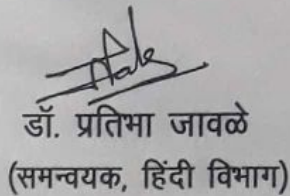 डॉ. प्रतिभा जावळे
(समन्वयक, हिंदी विभाग)